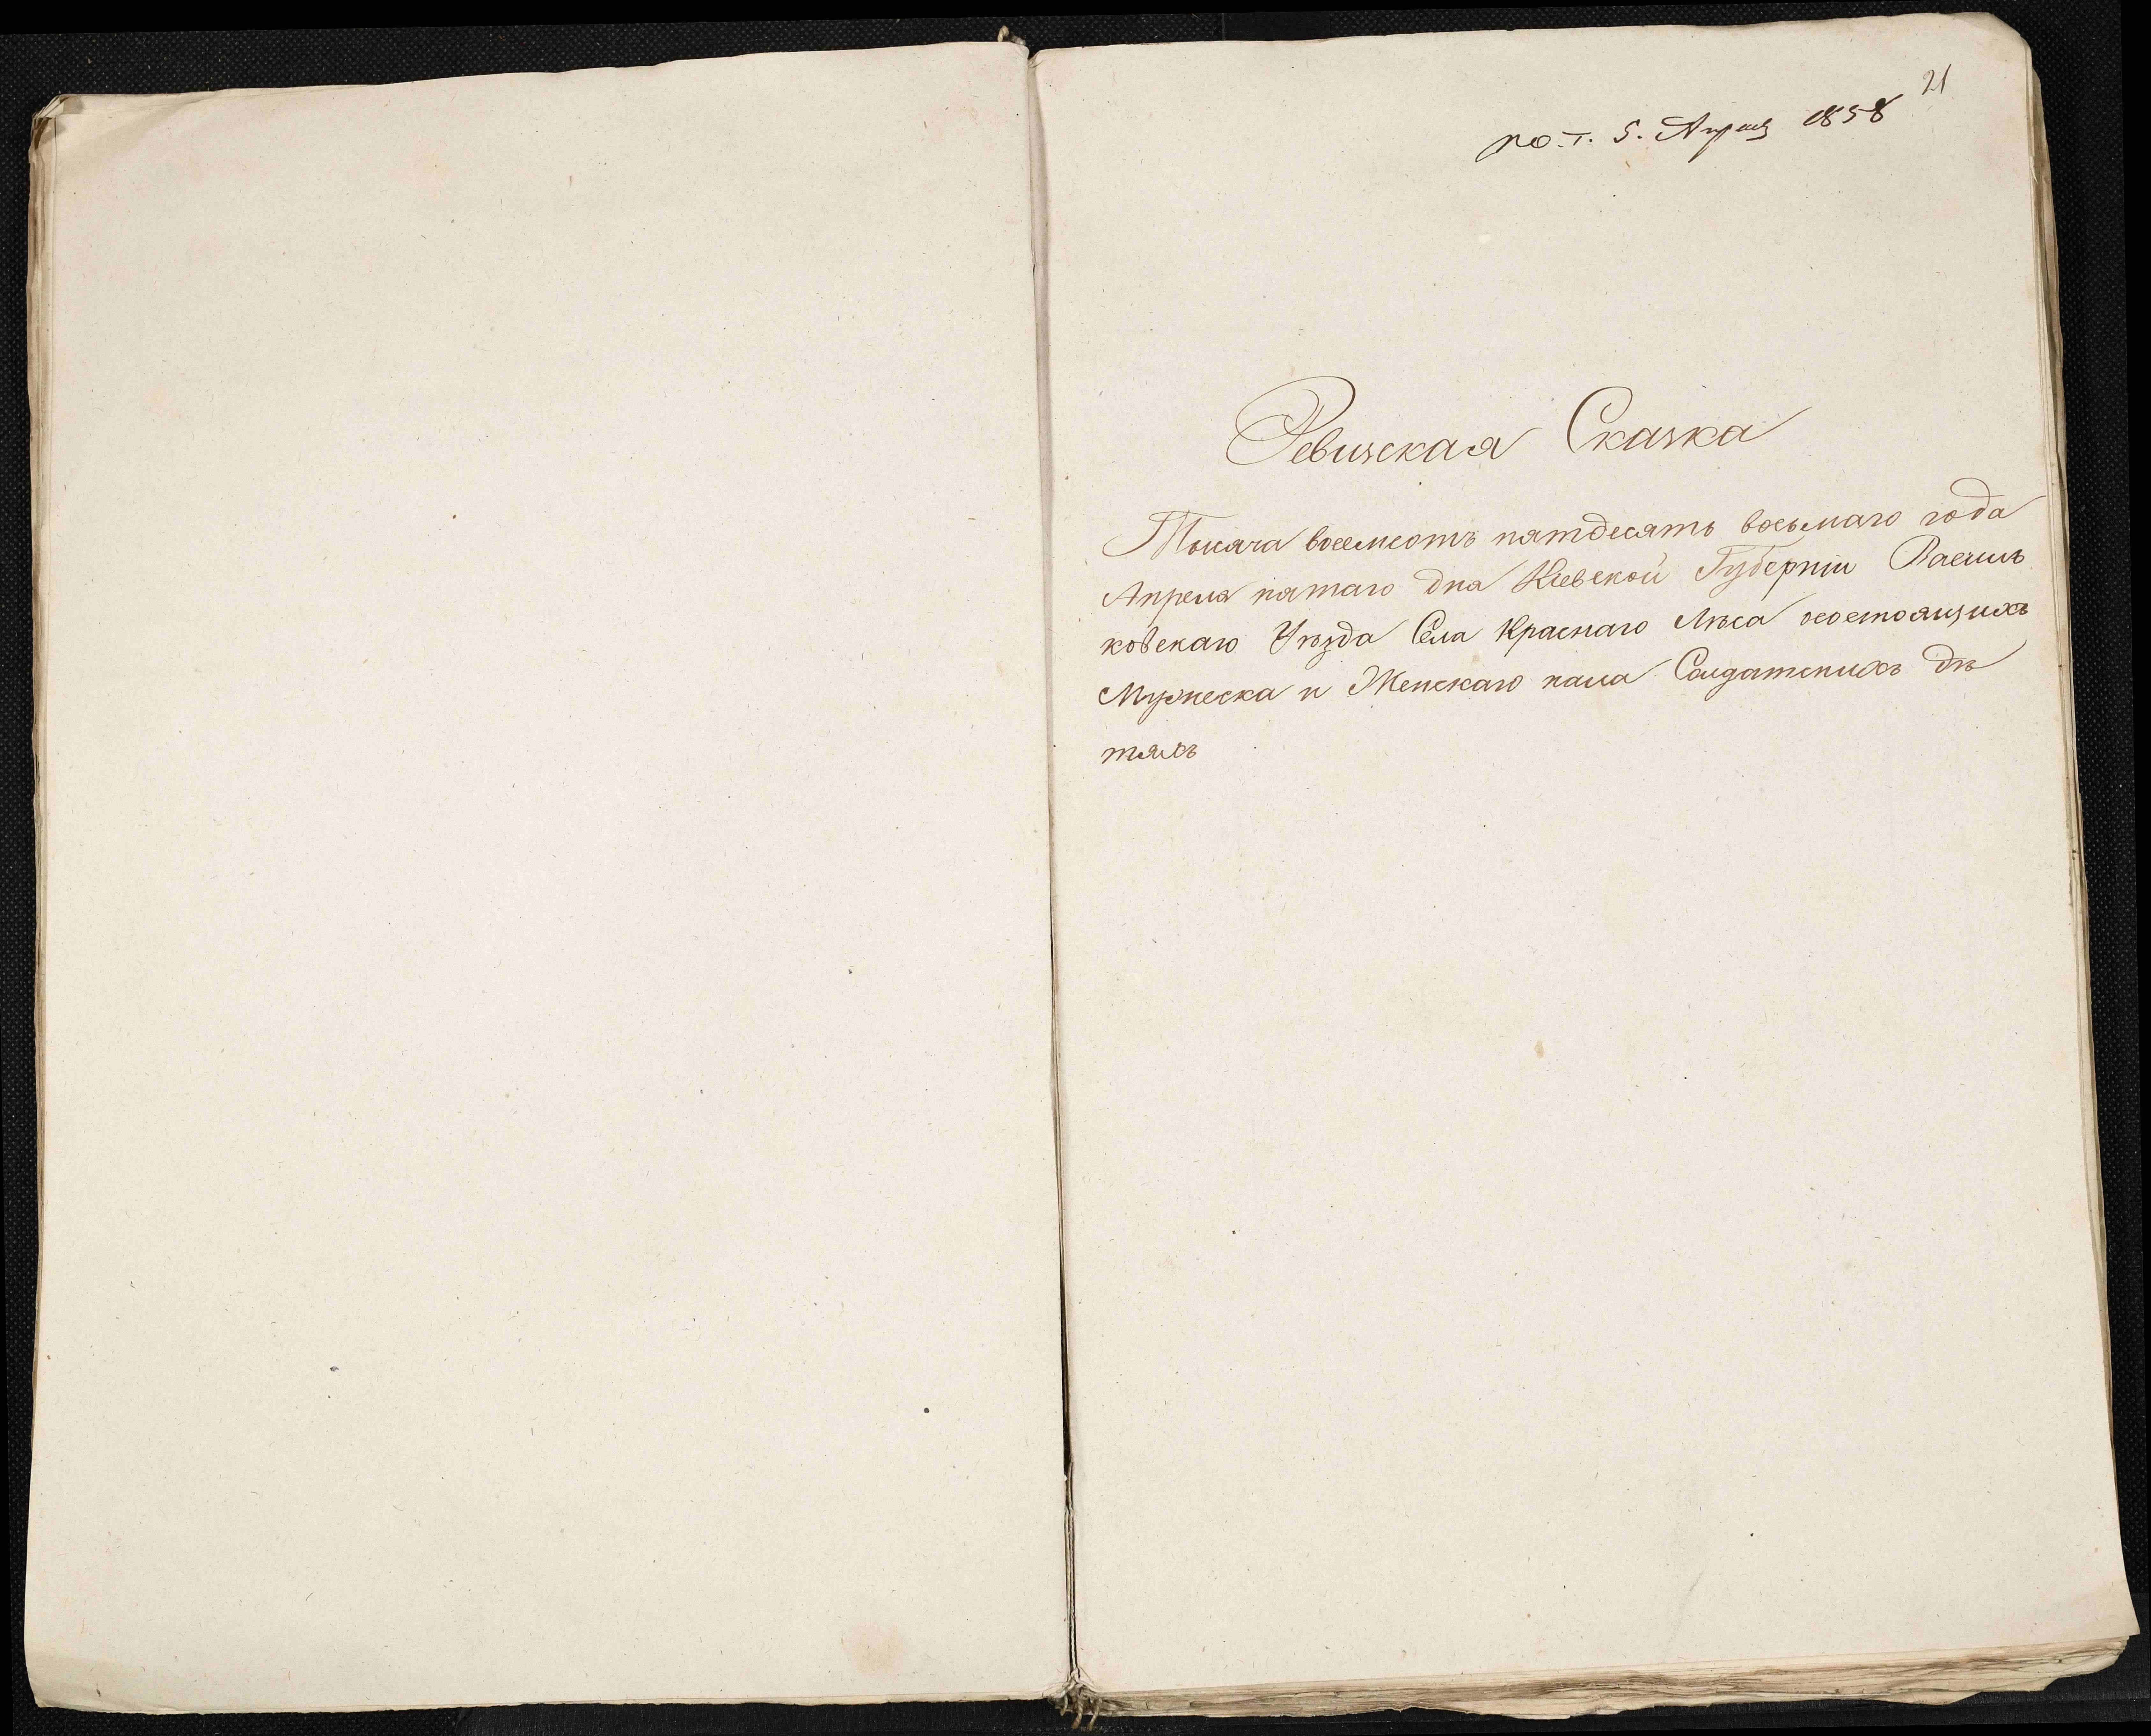 21
5. Апреля 1858
Ревизская Сказка
Тысяча восемсотъ пятдесятъ восьмаго года
Апреля пятаго дня Кіевской Губерніи Василь
ковскаго Уѣзда Села Краснаго Лѣса состоящихъ
Мужеска и Женскаго пола Солдатскихъ дѣ
тяхъ